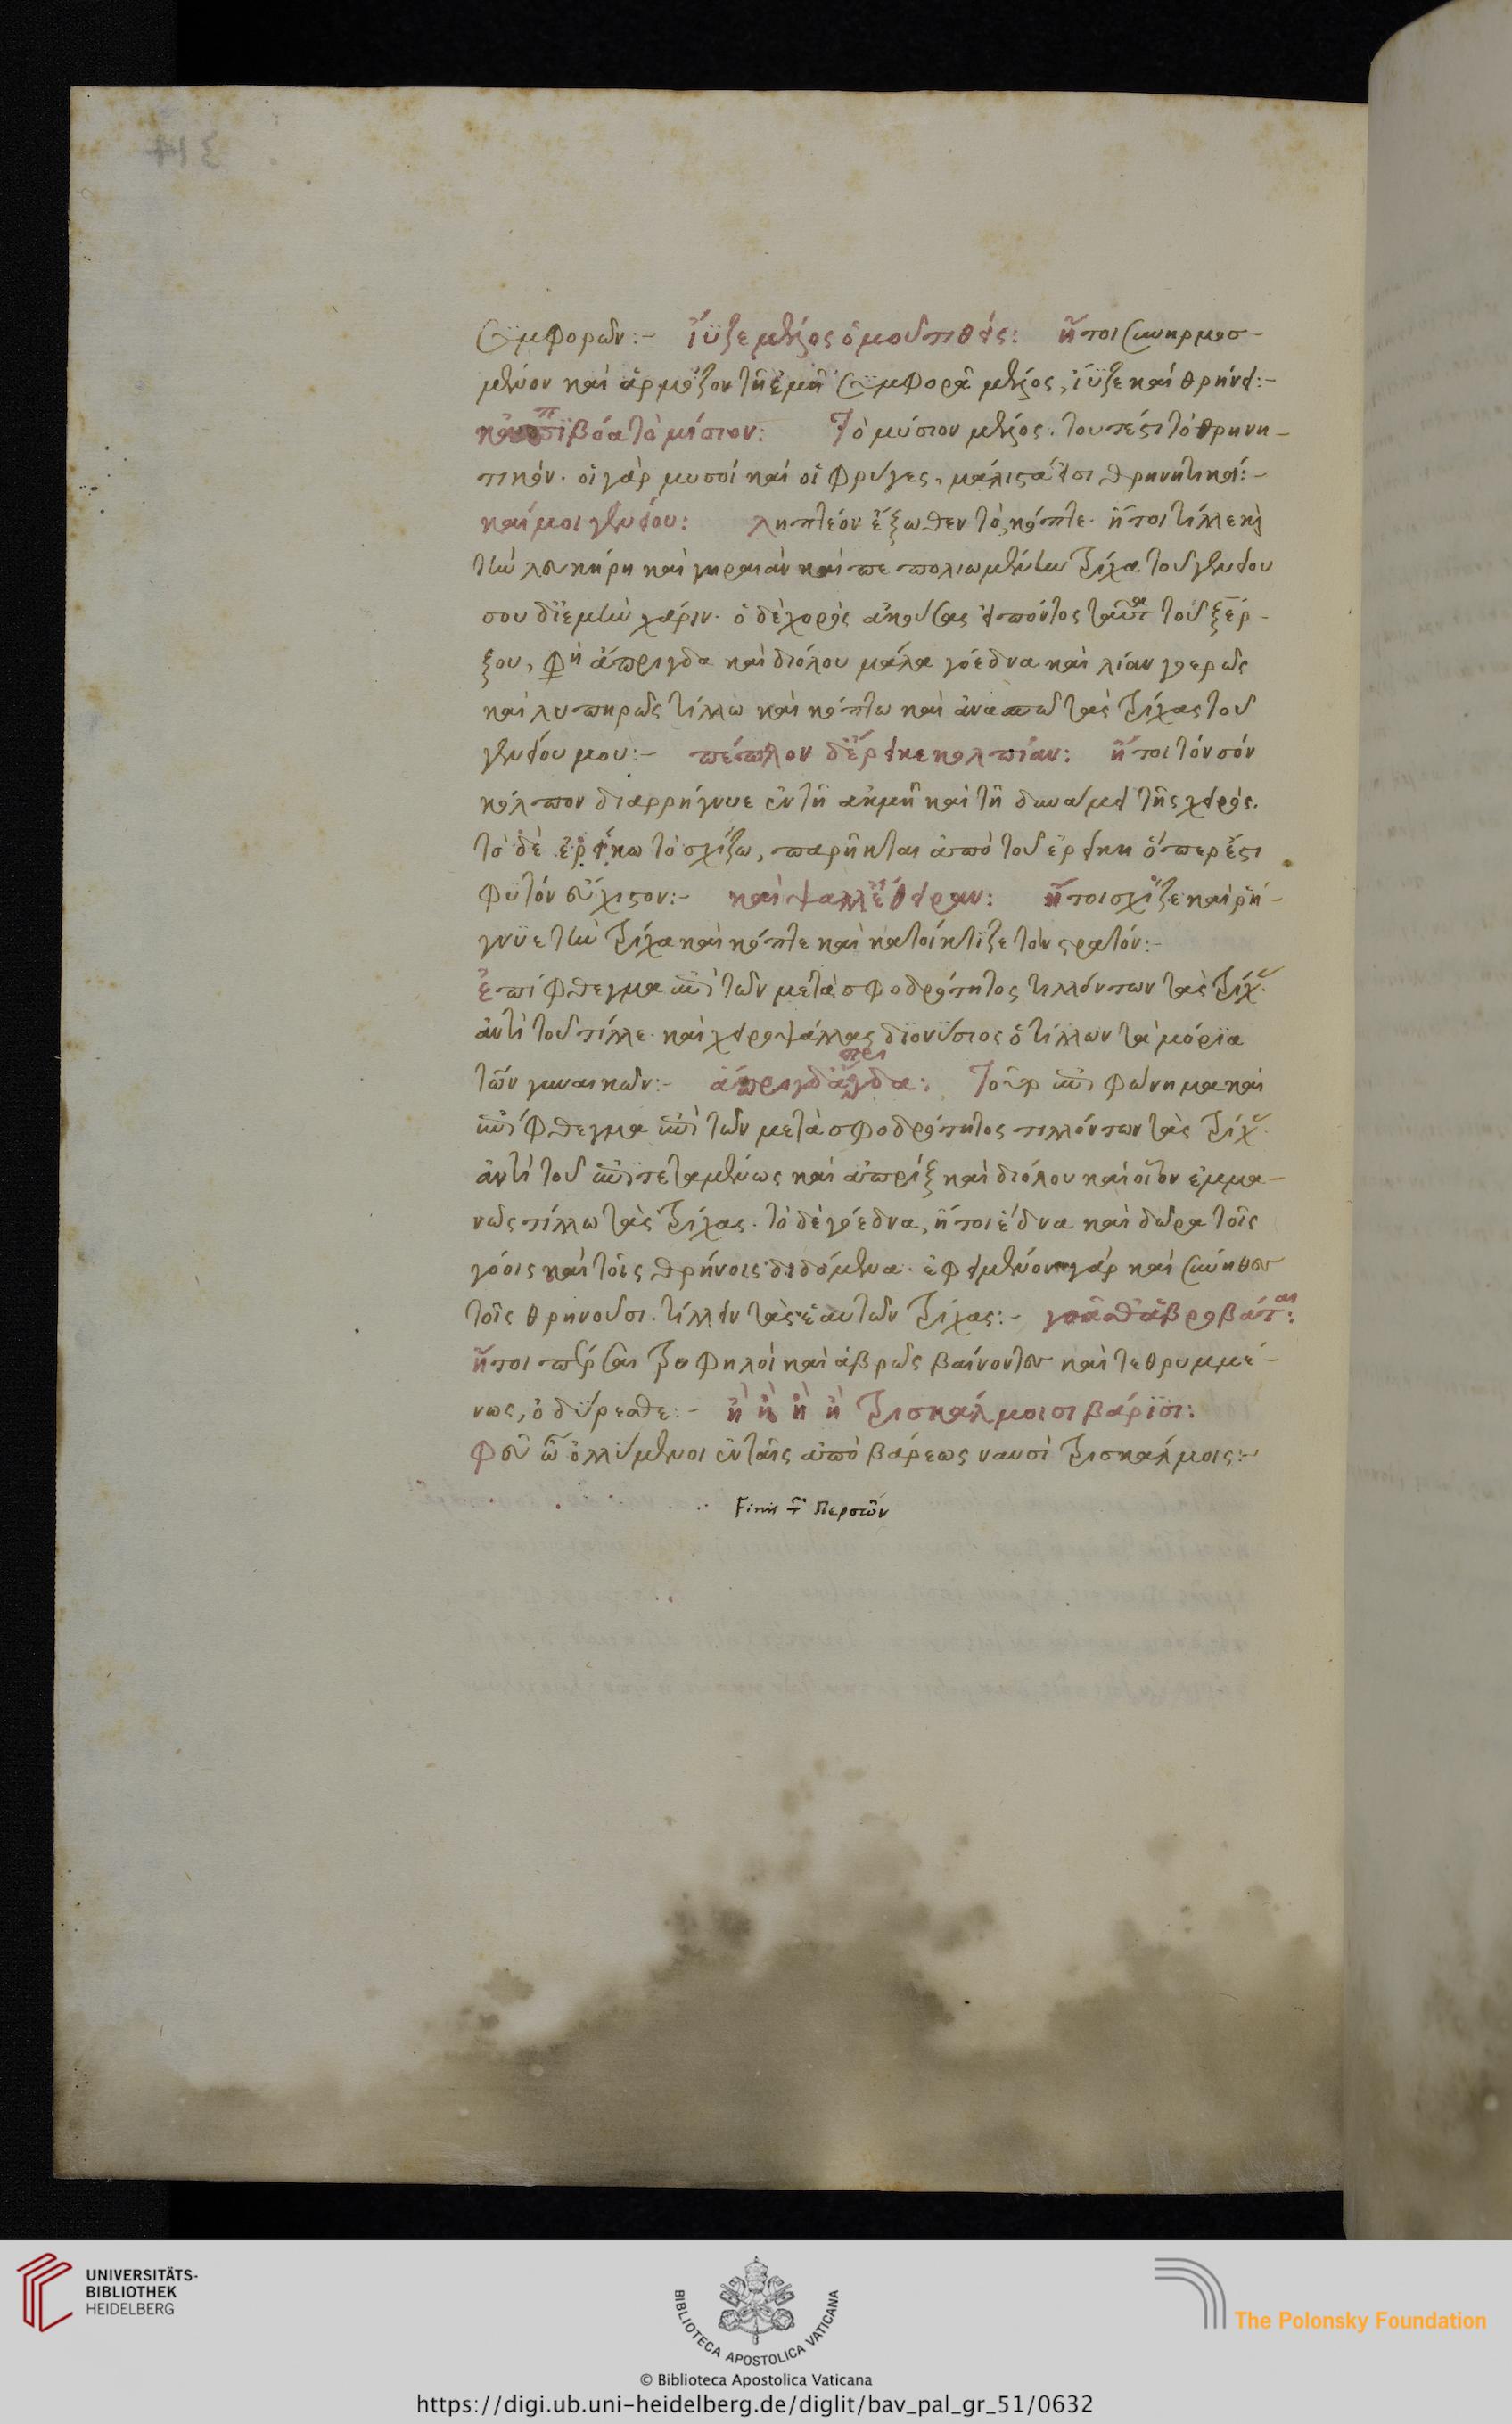 314
συμφορῶν:- ἴϋζε μέλος ὁμοῦ τιθείς: ἤτοι συνηρμοσ-
μένον καὶ ἁρμόζον τῇ ἐμῇ συμφορᾷ μέλος, ἴϋζε καὶ θρήνει:-
κἀπιβόα τὸ μύσιον: Τὸ μύσιον μέλος. τουτέστι τὸ θρηνη-
τικόν. οἱ γὰρ μυσοὶ καὶ οἱ φρύγες, μάλιστά εἰσι θρηνητικοί:-
καί μοι γενείου: ληπτέον ἔξωθεν τὸ, κόπτε. ἤτοι τίλλε καὶ
τὴν λευκήρη καὶ γηραιὰν καὶ πεπολιωμένην τρίχα τοῦ γενείου
σου δι' ἐμὴν χάριν. ὁ δὲ χορὸς ἀκούσας εἰπόντος ταῦτα τοῦ ξέρ-
ξου, φησὶν ἄπριγδα καὶ διόλου μάλα γόεδνα καὶ λίαν γοερῶς
καὶ λυπηρῶς τίλλω καὶ κόπτω καὶ ἀνασπῶ τὰς τρίχας τοῦ
γενείου μου:- πέπλον δ' ἔρεικε κολπίαν: ἤτοι τὸν σὸν
κόλπον διαρρήγνυε ἐν τῇ ἀκμῇ καὶ τῇ δυνάμει τῆς χειρός.
τὸ δὲ ἐρείκω τὸ σχίζω, παρῆκται ἀπὸ τοῦ ἐρείκη ὅπερ ἐστὶ
φυτὸν εὔχιστον:- καὶ ψάλλ' ἔθειραν: ἤτοι σχίζε καὶ ῥή-
γνυε τὴν τρίχα καὶ κόπτε καὶ κατοίκτιζε τὸν στρατόν:-
ἐπίφθεγμα ἐπὶ τῶν μετὰ σφοδρότητος τιλλόντων τὰς τρίχ.
ἀντὶ τοῦ τίλλε. καὶ χειροψάλλας διονύσιος ὁ τίλλων τὰ μόρια
τῶν γυναικῶν:- ἄπριγδ' ἄπριγδα: Τὸ ἐπιφώνημα καὶ
ἐπίφθεγμα ἐπὶ τῶν μετὰ σφοδρότητος τιλλόντων τὰς τρίχ.
ἀντὶ τοῦ ἐπιτεταμένως καὶ ἀπρὶξ καὶ διόλου καὶ οἷον ἐμμα-
νῶς τίλλω τὰς τρίχας. τὸ δὲ γόεδνα, ἤτοι ἕδνα καὶ δῶρα τοῖς
γόοις καὶ τοῖς θρήνοις διδόμενα. ἐφειμένον γὰρ καὶ σύνηθες
τοῖς θρηνοῦσι. τίλλειν τὰς ἑαυτῶν τρίχας:- γοᾶσθ' ἁβροβάται:
ἤτοι πέρσαι τρυφηλοὶ καὶ ἁβρῶς βαίνοντες καὶ τεθρυμμέ-
νως, ὀδύρεσθε:- ἢ ἢ ἢ ἢ τρισκάλμοισι βάρισι:
φεῦ ὦ ὀλλύμενοι ἐν ταῖς ἀπὸ βάρεως ναυσὶ τρισκάλμοις:-
Finis τ Περσῶν
UNIVERSITÄTS-
BIBLIOTHEK
HEIDELBERG
BIBLIOTECA APOSTOLICA VATICANA
The Polonsky Foundation
© Biblioteca Apostolica Vaticana
https://digi.ub.uni-heidelberg.de/diglit/bav_pal_gr_51/0632